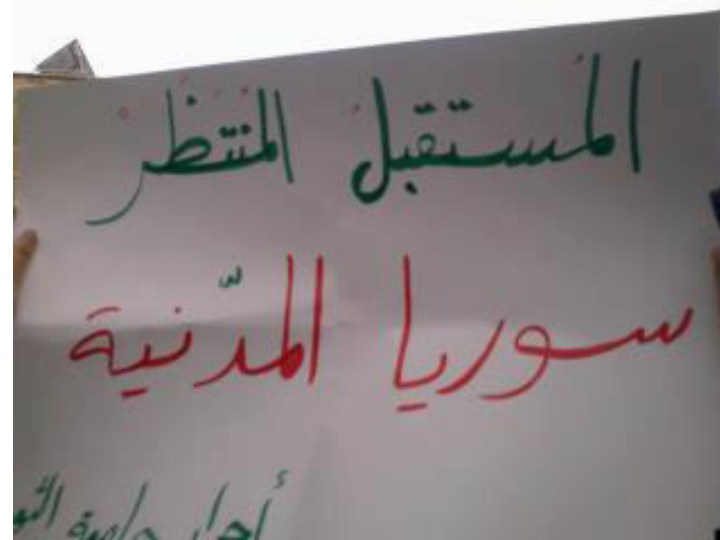 المستقبل المنتظر
سوريا المدّنية
أحرار جامعة